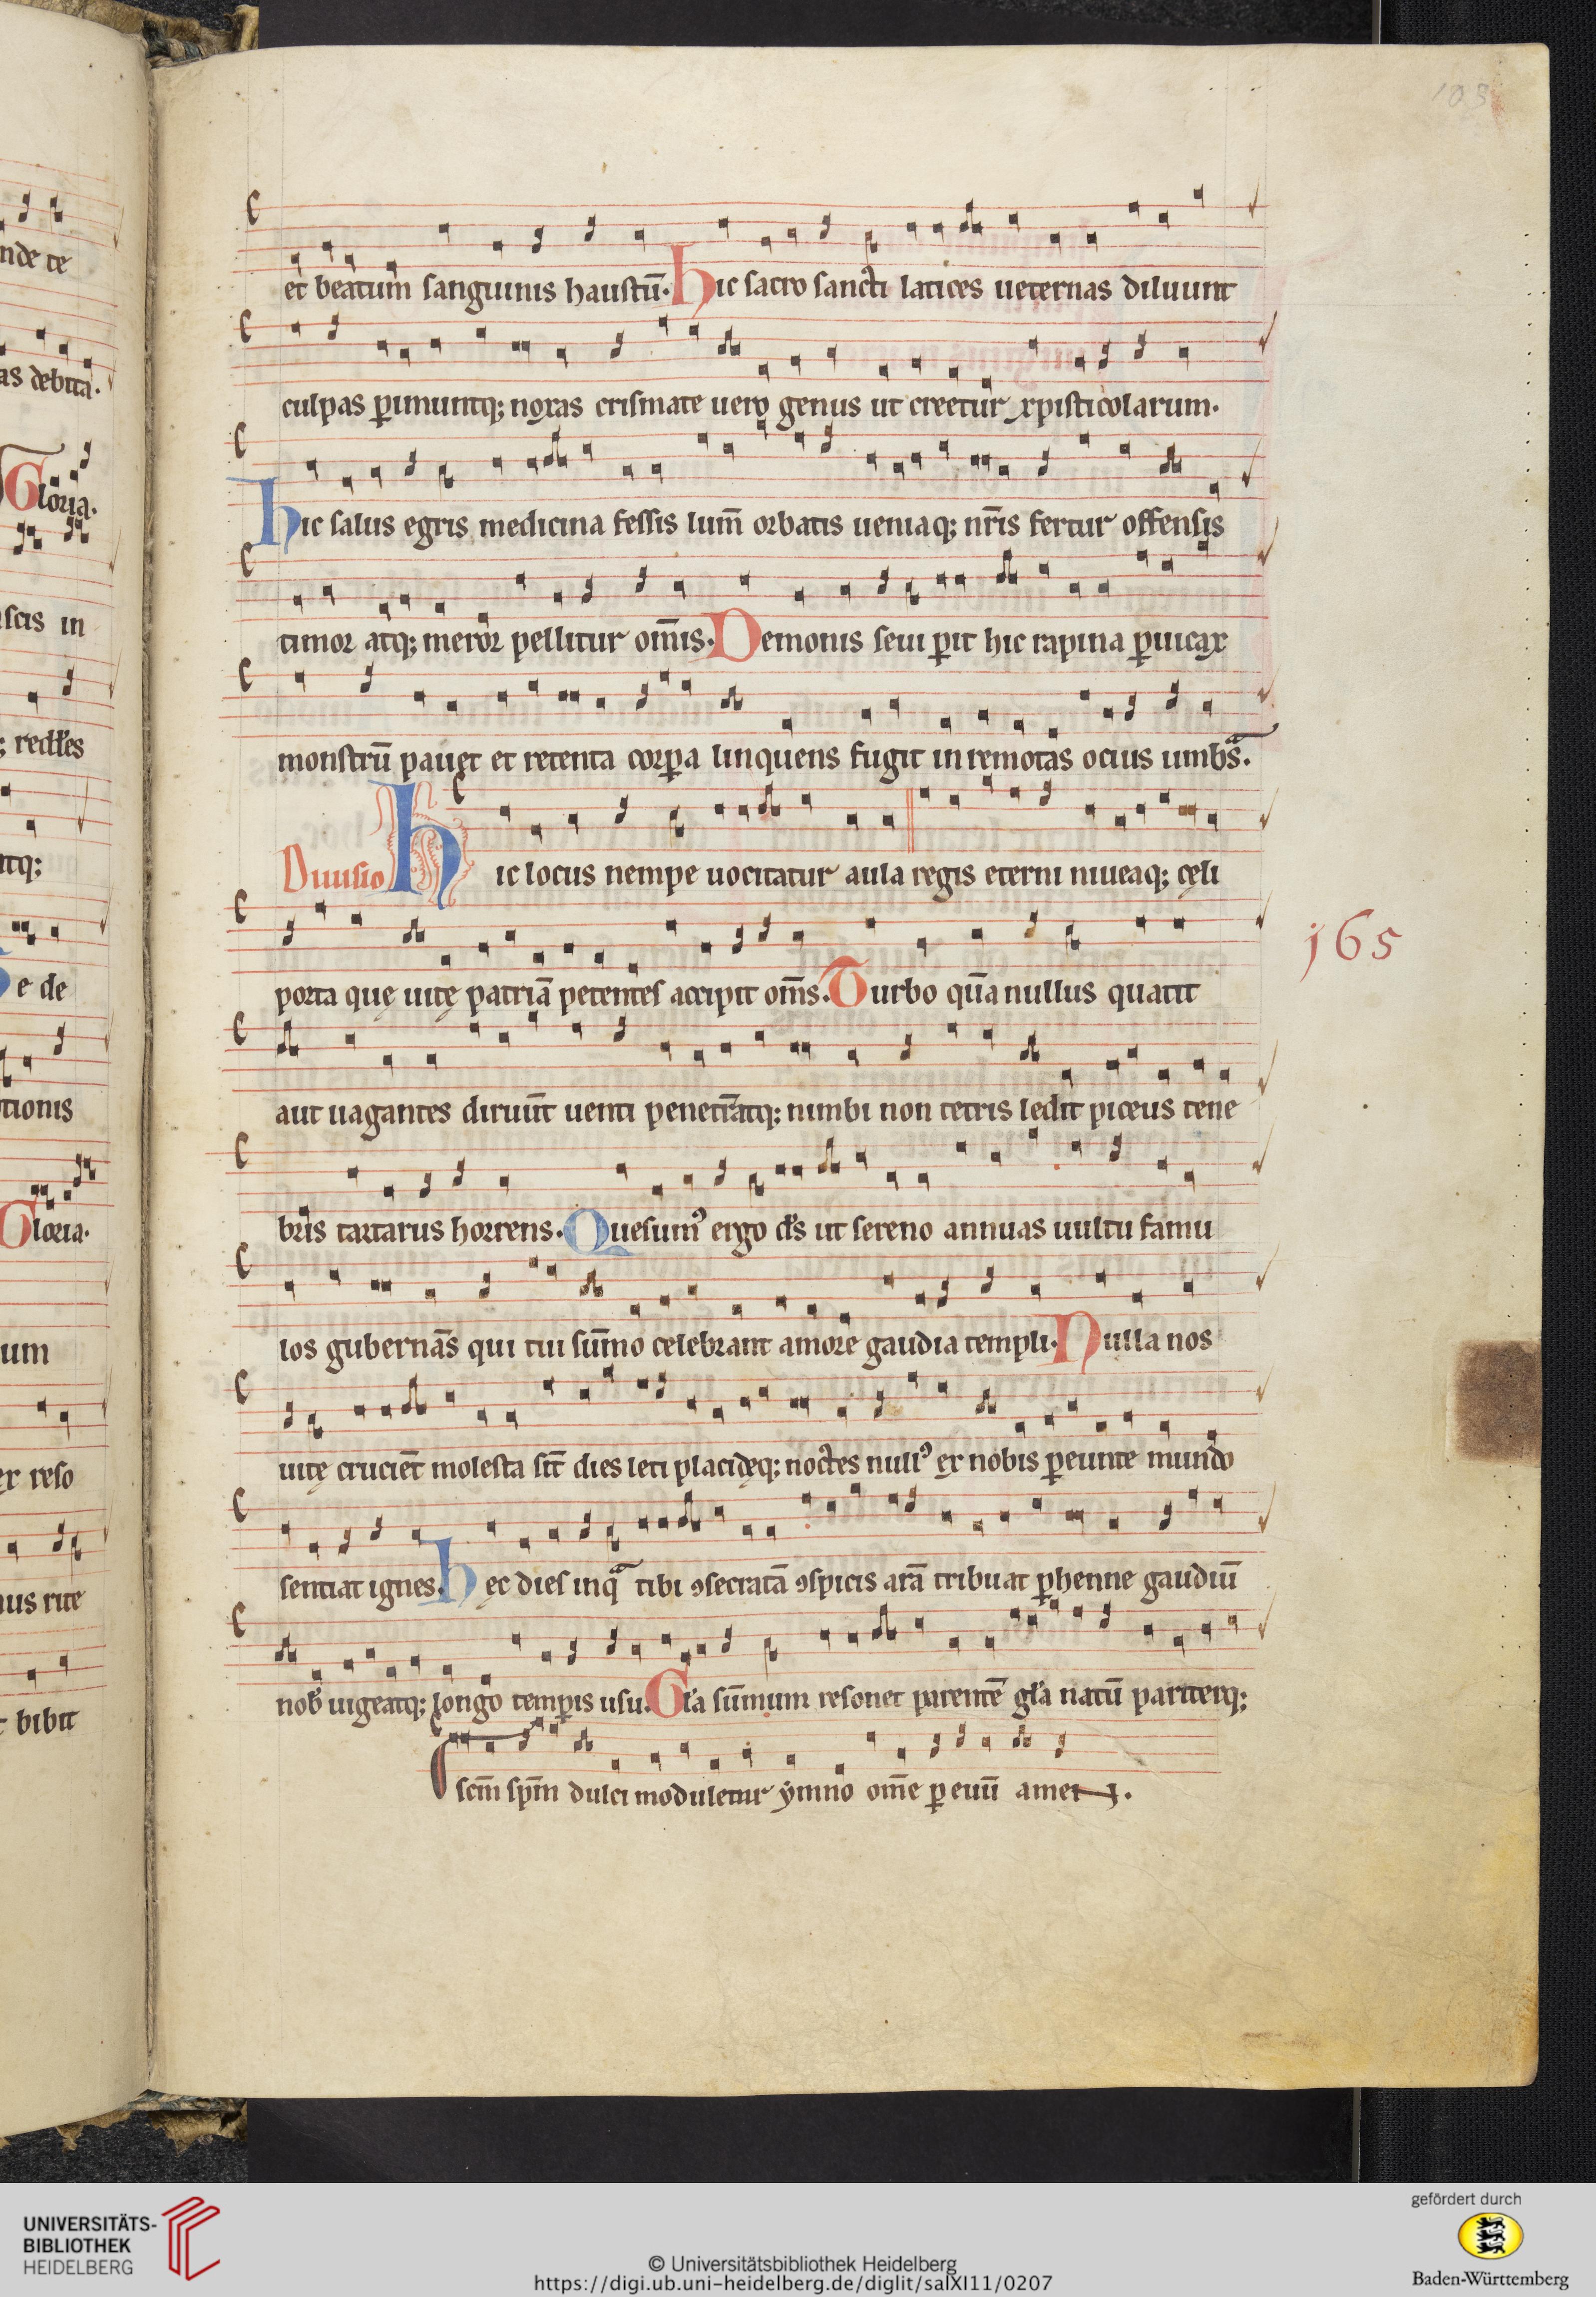 103
nde te
et beatum sanguinis haustū. Hic sacro sancti latices ueternas diluunt
as debita.
culpas ꝑimuntq; noxas crismate uero genus ut creetur xpisticolarum.
Gloria.
Hic salus egris medicina fessis lum̄ orbatis ueniaq; nr̄is fertur offensis
scis in
timor atq; meror pellitur om̄is. Demonis seui ꝑit hic rapina ꝑuicax
; redd̄es
monstrū pauet et retenta corꝑa linquens fugit in remotas ocius umbs̄.
atq;
Diuisio Hic locus nempe uocitatur aula regis eterni niueaq; cęli
e de
porta quę uitę patriā petentes accipit om̄s. Turbo qūa nullus quatit
165
tionis
aut uagantes diruūt uenti penetrātq; nimbi non tetris ledit piceus tene
Gloria.
bris tartarus horrens. Quesumꝰ ergo ds̄ ut sereno annuas uultu famu
um
los gubernās qui tui sūmo celebrant amore gaudia templi. Nulla nos
ex reso
uitę cruciēt molesta sīt dies leti placidęq; noctes nullꝰ ex nobis ꝑeunte mundo
us rite
sentiat ignes. Hęc dies inqᷓ tibi ꝯsecratā ꝯspicis arā tribuat ꝑhenne gaudiū
bibit
nob̄ uigeatq; longo temꝑis usu. Gl̄a sūmum resonet parentē gl̄a natū pariterq;
scm̄ spm̄ dulci moduletur ymno om̄e ꝑ euū amen.
UNIVERSITÄTS-
BIBLIOTHEK
HEIDELBERG
© Universitätsbibliothek Heidelberg
https://digi.ub.uni-heidelberg.de/diglit/salXI11/0207
gefördert durch
Baden-Württemberg